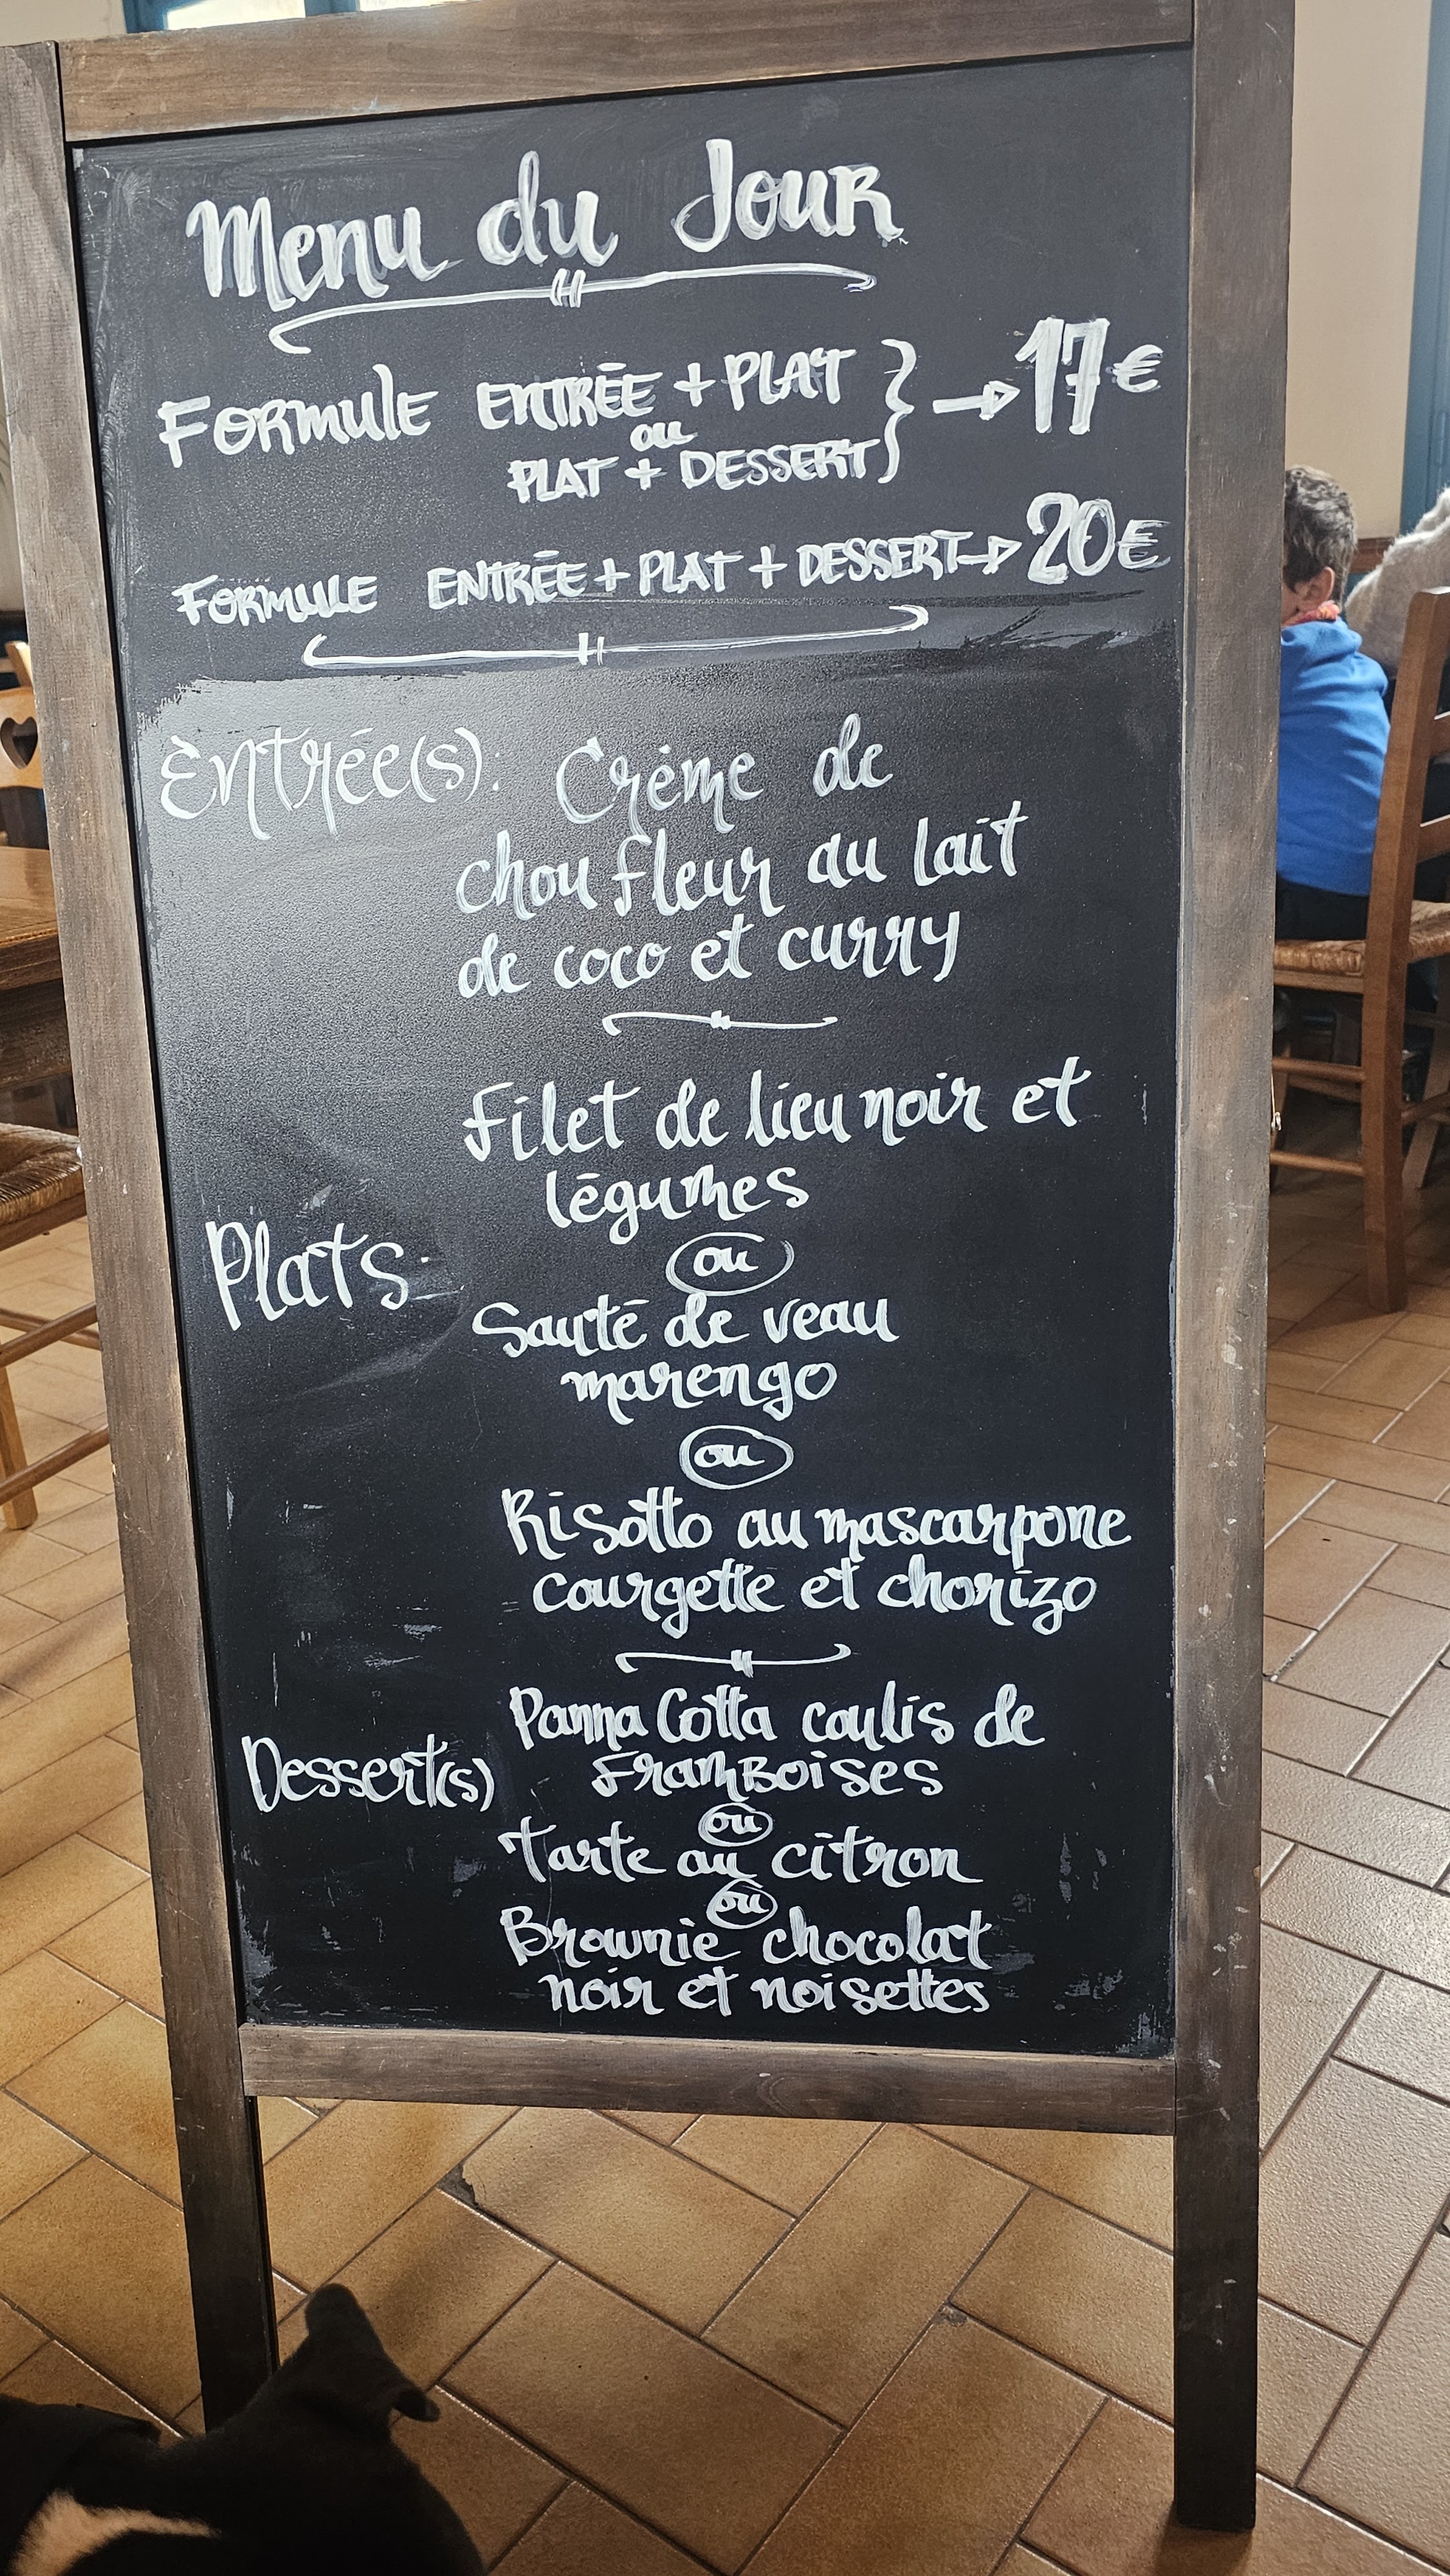 Menu du Jour
Formule ENTRÉE + PLAT } → 17€
ou
PLAT + DESSERT
Formule ENTRÉE + PLAT + DESSERT → 20€
Entrée(s): Crème de
chou fleur au lait
de coco et curry
Filet de lieu noir et
légumes
Plats:
ou
Sauté de veau
marengo
ou
Risotto au mascarpone
courgette et chorizo
Panna Cotta coulis de
Framboises
Dessert(s)
ou
Tarte au citron
ou
Brownie chocolat
noir et noisettes